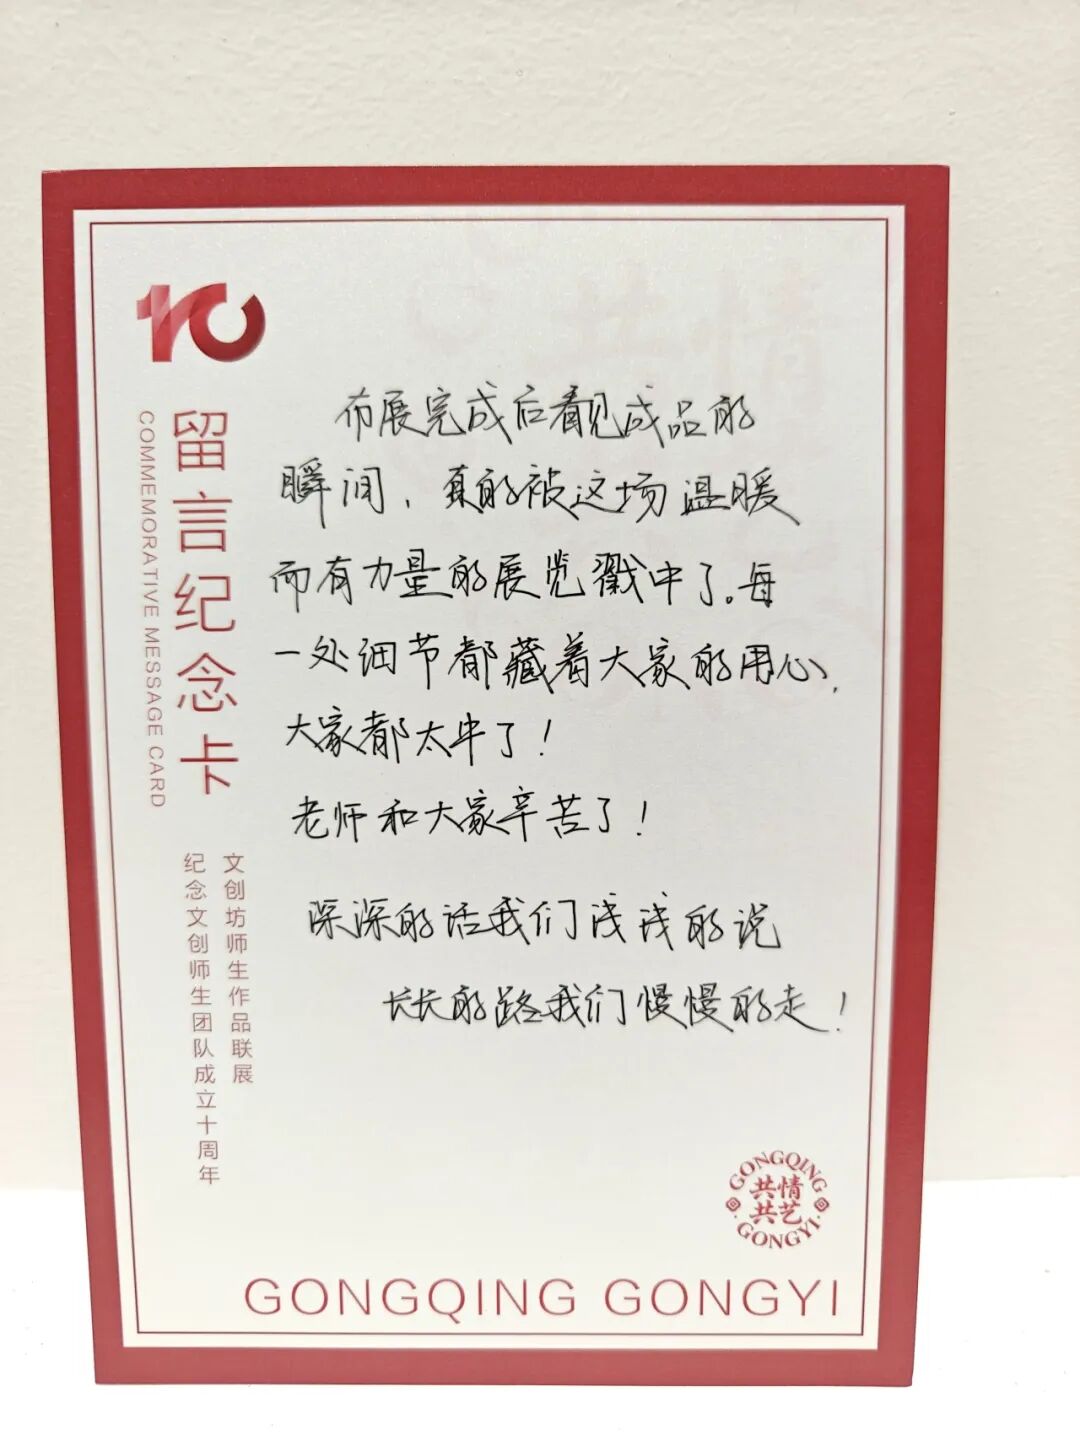 10
留言纪念卡
COMMEMORATIVE MESSAGE CARD
文创坊师生作品联展
纪念文创师生团队成立十周年
布展完成后看见成品的
瞬间，真的被这场温暖
而有力量的展览戳中了。每
一处细节都藏着大家的用心，
大家都太牛了！
老师和大家辛苦了！
深深的话我们浅浅的说
长长的路我们慢慢的走！
GONGQING
共情
共艺
GONGYI
GONGQING GONGYI